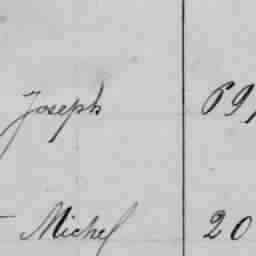 Joseph 69
Michel 20